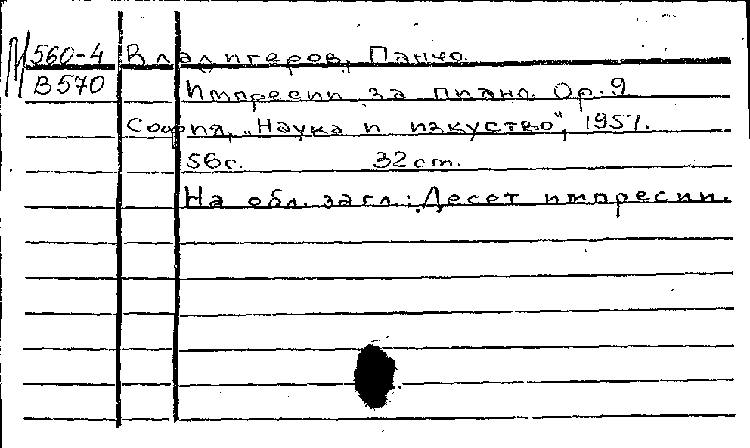 М 560-4 Владигеров, Панчо
В570 Импресии за пиано. Ор. 9
София, „Наука и изкуство", 1951.
56 с. 32 cm.
На обл. загл.: Десет импресии.